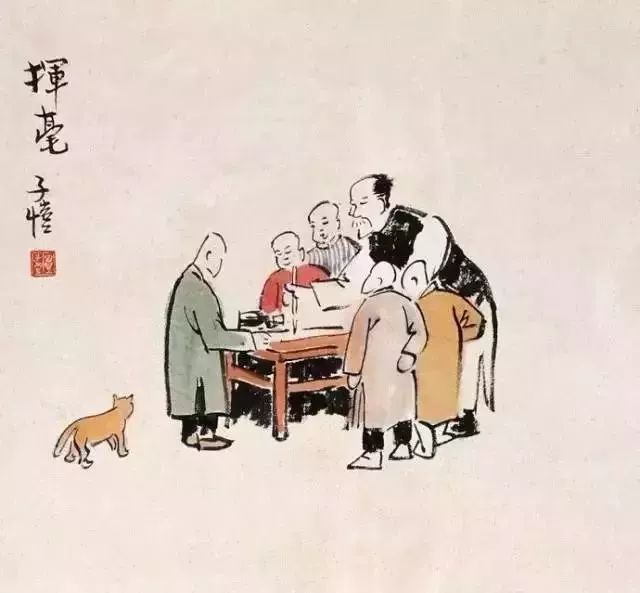 揮毫
子愷